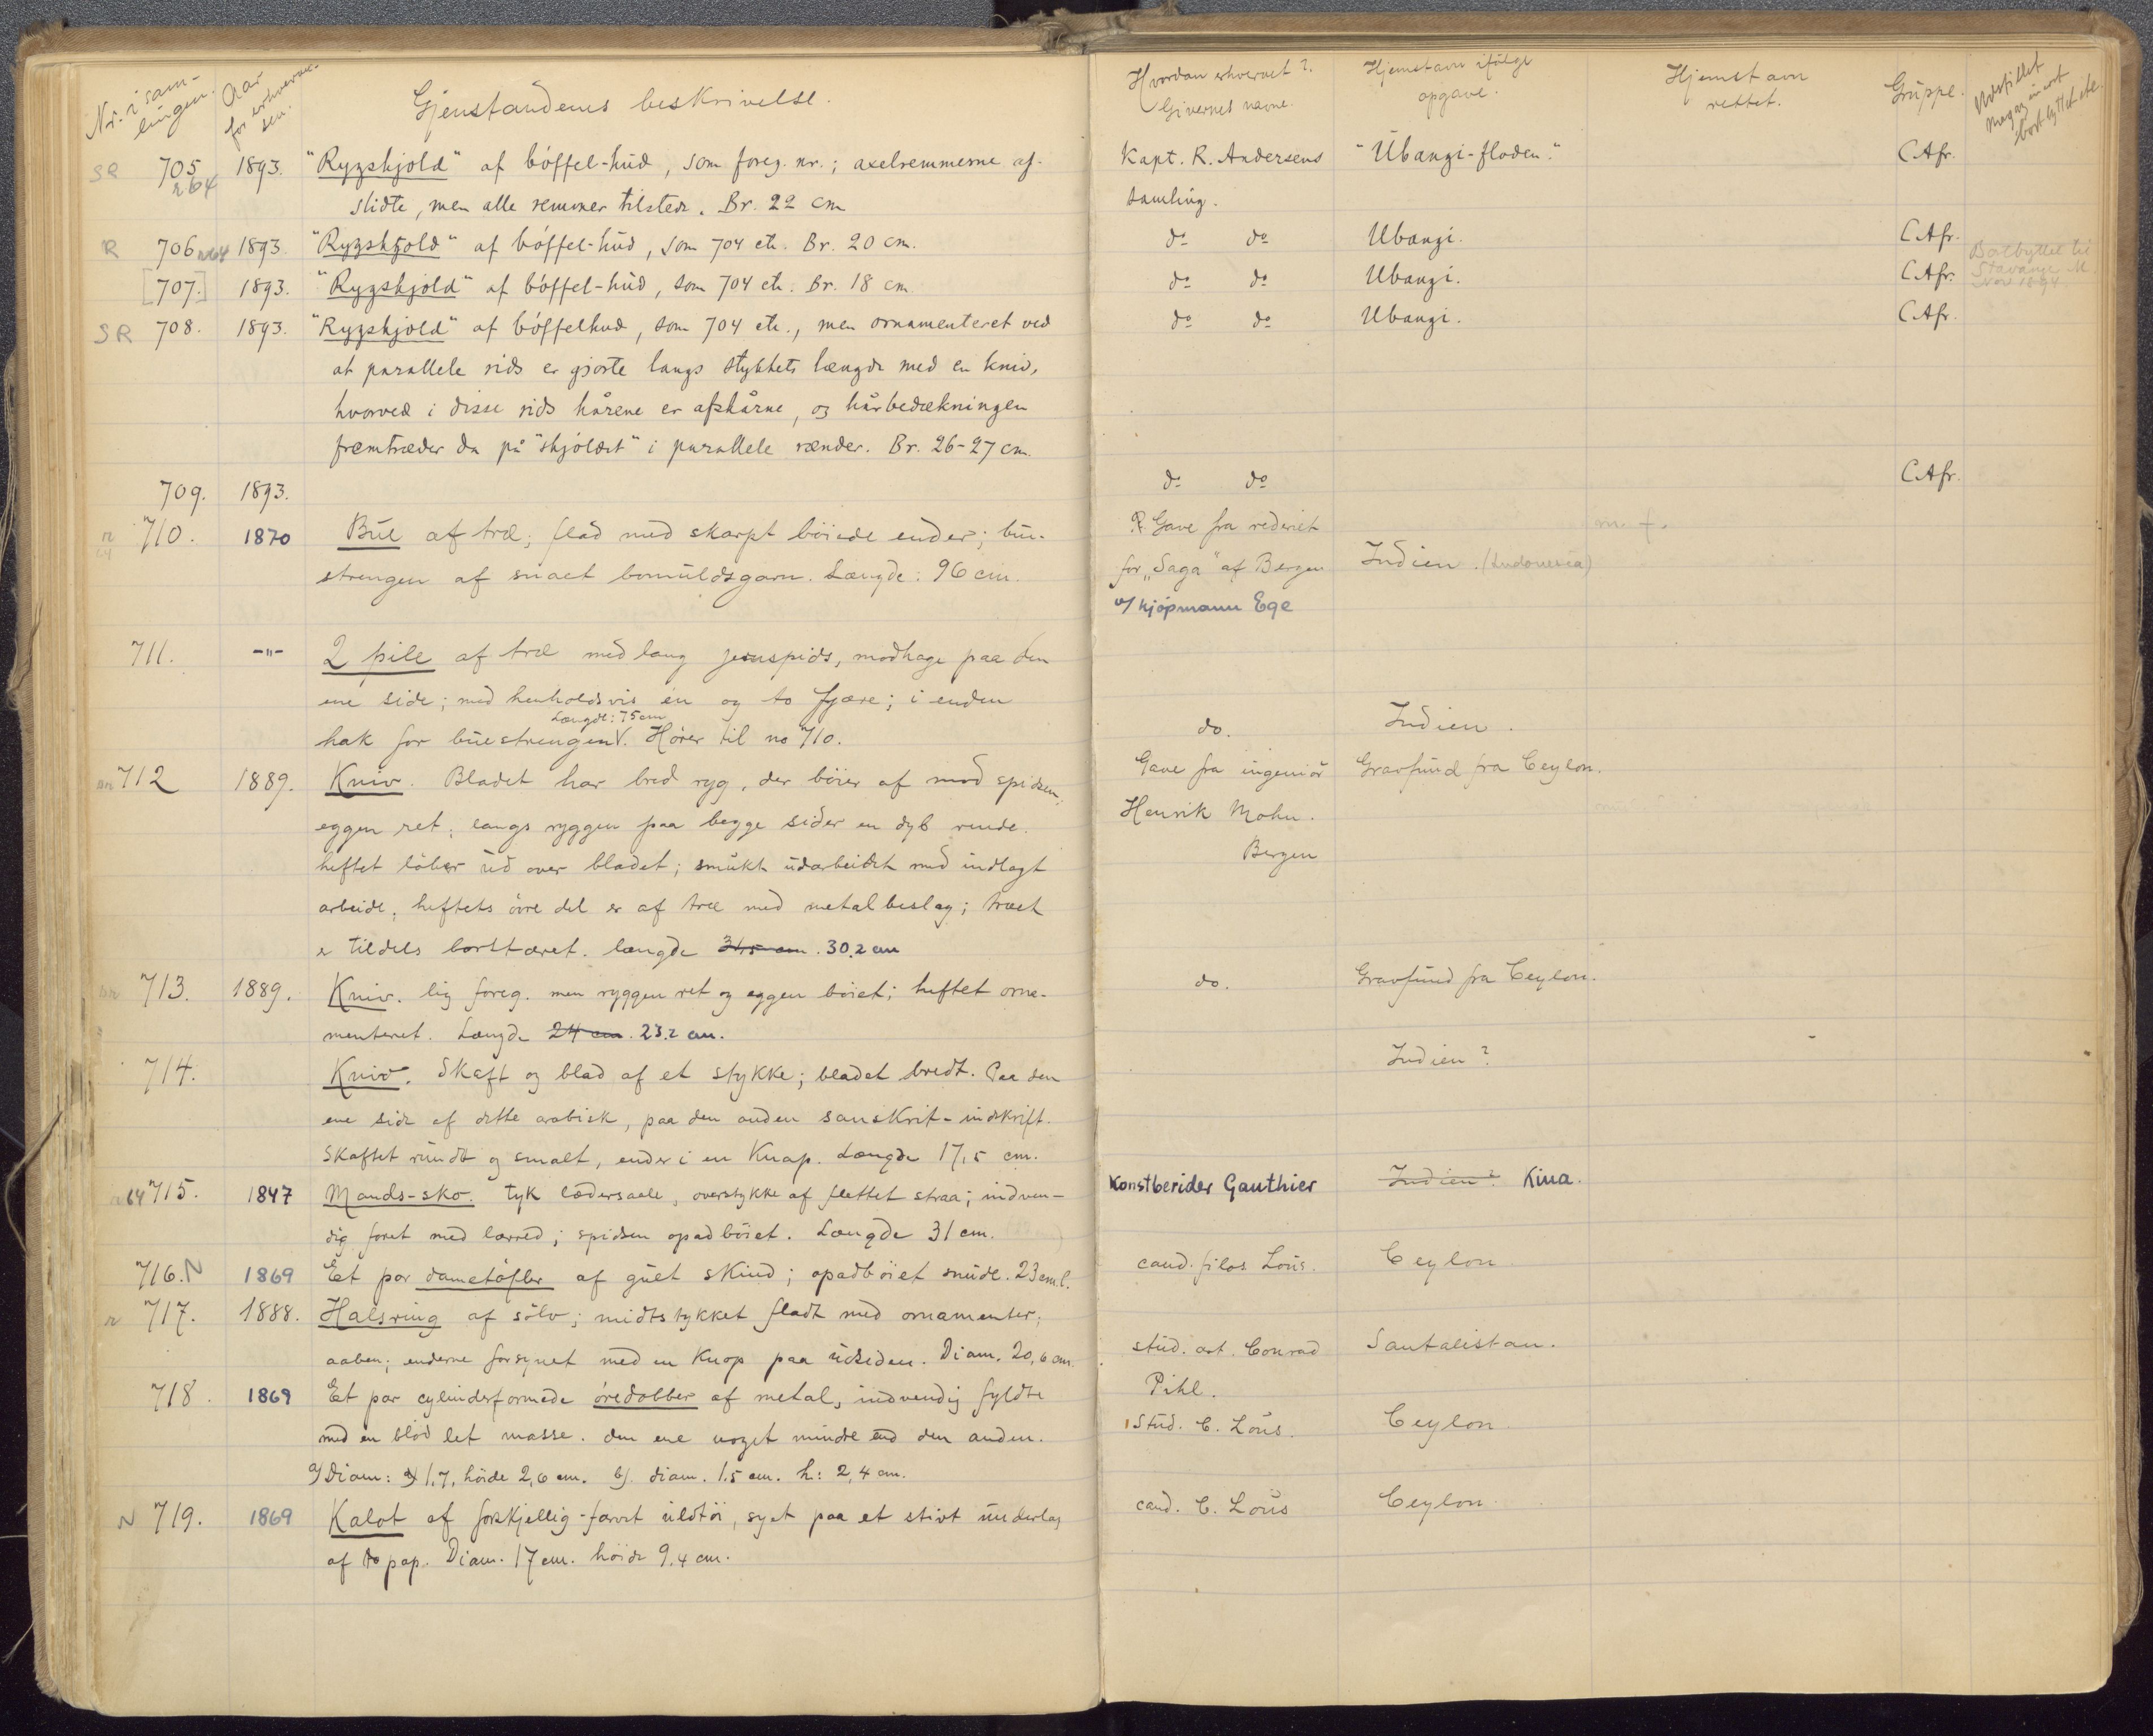 Nr. i sam-
lingen.
Aar
for erhvervel-
sen.
Gjenstandens beskrivelse.
Hvordan erhvervet?
Givernes navne.
Hjemstavn ifölge
opgave.
Hjemstavn
rettet.
Gruppe.
Udstillet
bortbyttet etc.
SR 705 1893. "Rygskjold" af böffel-hud, som foreg. nr.; axelremmerne af- Kapt. R. Andersens "Ubangi-floden." CAfr.
r64 slidte, men alle remmer tilstede. Br. 22 cm samling.
R 706 r64 1893. "Rygskjold" af böffel-hud, som 704 etc. Br. 20 cm. do do Ubangi. CAfr.
[707.] 1893. "Rygskjold" af böffel-hud, som 704 etc. Br. 18 cm do do Ubangi. CAfr. Botbyttet til
Stavanger M.
1894
SR 708. 1893. "Rygskjold" af böffelhud, som 704 etc., men ornamenteret ved do do Ubangi. CAfr.
at parallele rids er gjorte langs stykkets længde med en kniv,
hvorved i disse rids hårene er afskårne, og hårbedækningen
fremtræder da på "skjoldet" i parallele rænder. Br. 26-27 cm.
709. 1893. do do CAfr.
710. 1870 Bue af træ; flad med skarpt böiede ender; bue- Gave fra rederiet
strengen af snoet bomuldsgarn. Længde: 96 cm. for "Saga" af Bergen Indien. (Indonesia)
v/ kjöpmann Ege
711. -"- 2 pile af træ med lang jernspids, modhage paa den
ene side; med henholdsvis én og to fjære; i enden
hak for buestrengen V. Længde: 75 cm Hörer til no 710. do. Indien.
712 1889. Kniv. Bladet har bred ryg, der böier af mod spidsen; Gave fra ingeniör Gravfund fra Ceylon.
eggen ret; langs ryggen paa begge sider en dyb rende. Henrik Mohn.
heftet löber ud over bladet; smukt udarbeidet med indlagt Bergen
arbeide, heftets övre del er af træ med metalbeslag; træet
er tildels borttæret. længde 31,5 cm. 30,2 cm
713. 1889. Kniv. lig foreg. men ryggen ret og eggen böiet; heftet orna- do. Gravfund fra Ceylon.
menteret. Længde 24 cm. 23,2 cm.
714. Kniv. Skaft og blad af et stykke; bladet bredt. Paa den Indien?
ene side af dette arabisk, paa den anden sanskrit-indskrift.
Skaftet rundt og smalt, ender i en Knap. Længde 17,5 cm.
715. 1847 Mands-sko. tyk lædersaale, overstykke af flettet straa; indven- Konstberider Gauthier Indien? Kina.
dig foret med lærred; spidsen opadböiet. Længde 31 cm.
716. N 1869 Et par dametöfler af guet skind; opadböiet snude. 23 cm l. cand. filos Lous. Ceylon
717. 1888. Halsring af sölv; midtstykket fladt med ornamenter;
aaben; enderne forsynet med en Knop paa udsiden. Diam. 20,6 cm. stud. art. Conrad Santalistan.
Pihl.
718. 1869 Et par cylinderformede öredobber af metal, indvendig fyldte
med en blöd let masse. den ene noget mindre end den anden. Stud. C. Lous. Ceylon
a) Diam: 1,7, höide 2,6 cm. b). diam. 1,5 cm. h: 2,4 cm.
N 719. 1869 Kalot af forskjellig-farvet uldtöi, syet paa et stivt underlag cand. C. Lous Ceylon.
af pap. Diam. 17 cm. höide 9,4 cm.